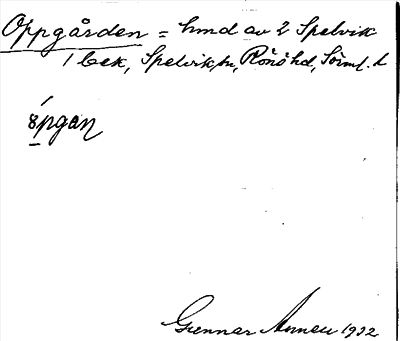 Oppgården = hmd av 2 Spelvik
1 Bek, Spelvik sn, Rönö hd, Sörml. l.
Gunnar 1932